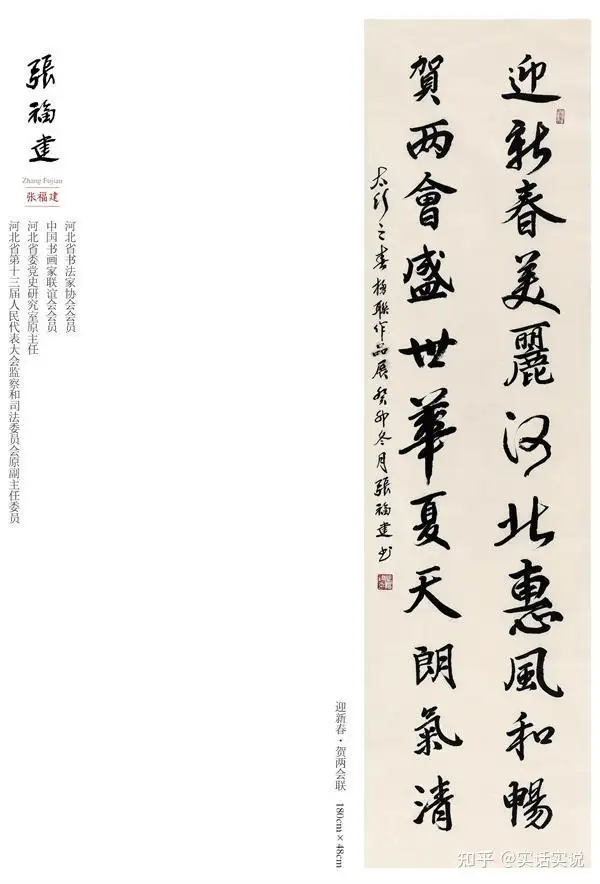 迎新春美麗河北惠風和暢
賀两會盛世華夏天朗氣清
太行之春楹聯作品展癸卯冬月張福建书
張福建
Zhang Fujian
张福建
河北省书法家协会会员
中国书画家联谊会会员
河北省委党史研究室原主任
河北省第十三届人民代表大会监察和司法委员会原副主任委员
迎新春·贺两会联 180cm×48cm
知乎 @实话实说